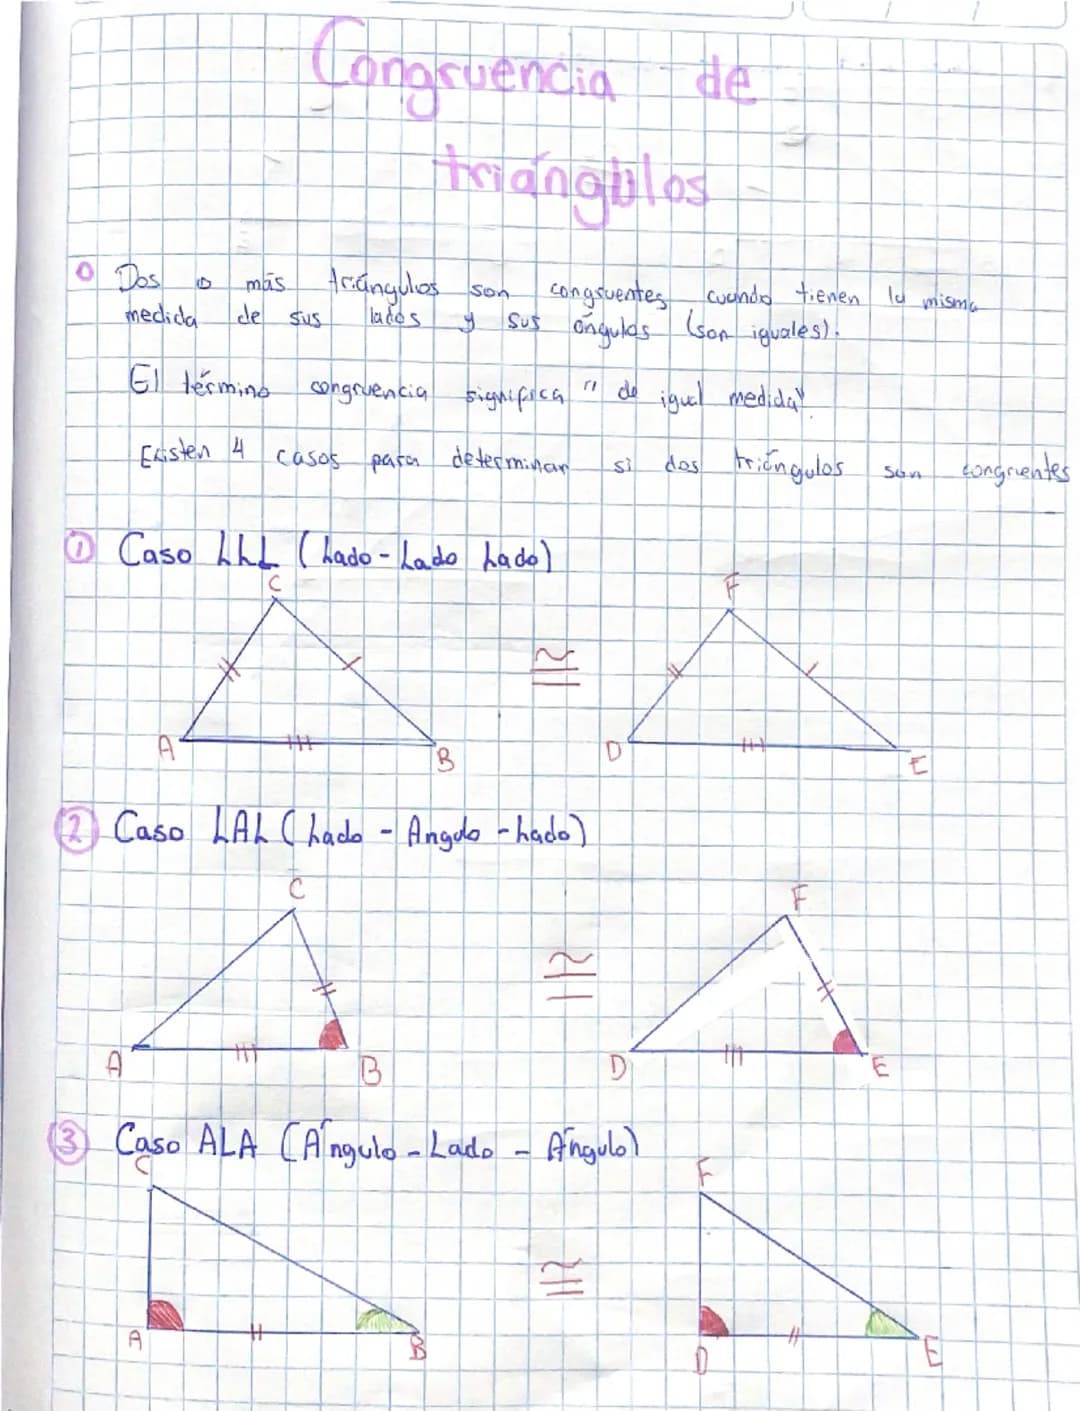 Congruencia de
triángulos
Dos o más triángulos son congruentes cuando tienen la misma
medida de sus lados y sus ángulos (son iguales).
El término congruencia significa "de igual medida".
Existen 4 casos para determinar si dos triángulos son congruentes
1 Caso LLL (Lado - Lado Lado)
C F
≅
A B D E
2 Caso LAL (Lado - Angulo - Lado)
C F
≅
A B D E
3 Caso ALA (Ángulo - Lado - Ángulo)
C F
≅
A B D E